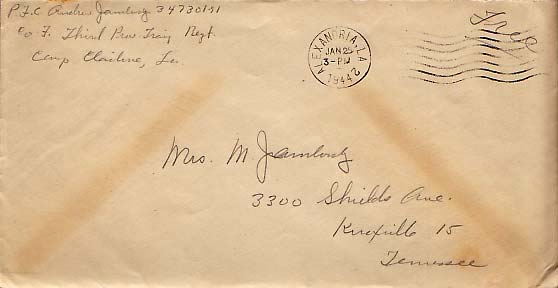 P.F.C. Andrew Jamborg 34730151
Co F. Third Prov Trng Regt
Camp Claiborne, La.
ALEXANDRIA, LA.
JAN 25
3-PM
1944
2
Free
Mrs. M. Jamborg
3300 Shields Ave.
Knoxville 15
Tennessee